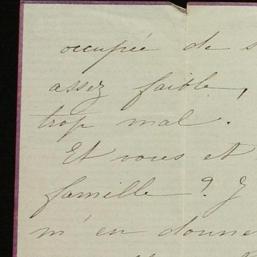 occupée de s
assez faible,
trop mal.
Et vous et
famille ? J
m'en donne